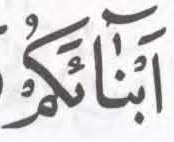 اَبْنَآئَكُمْ